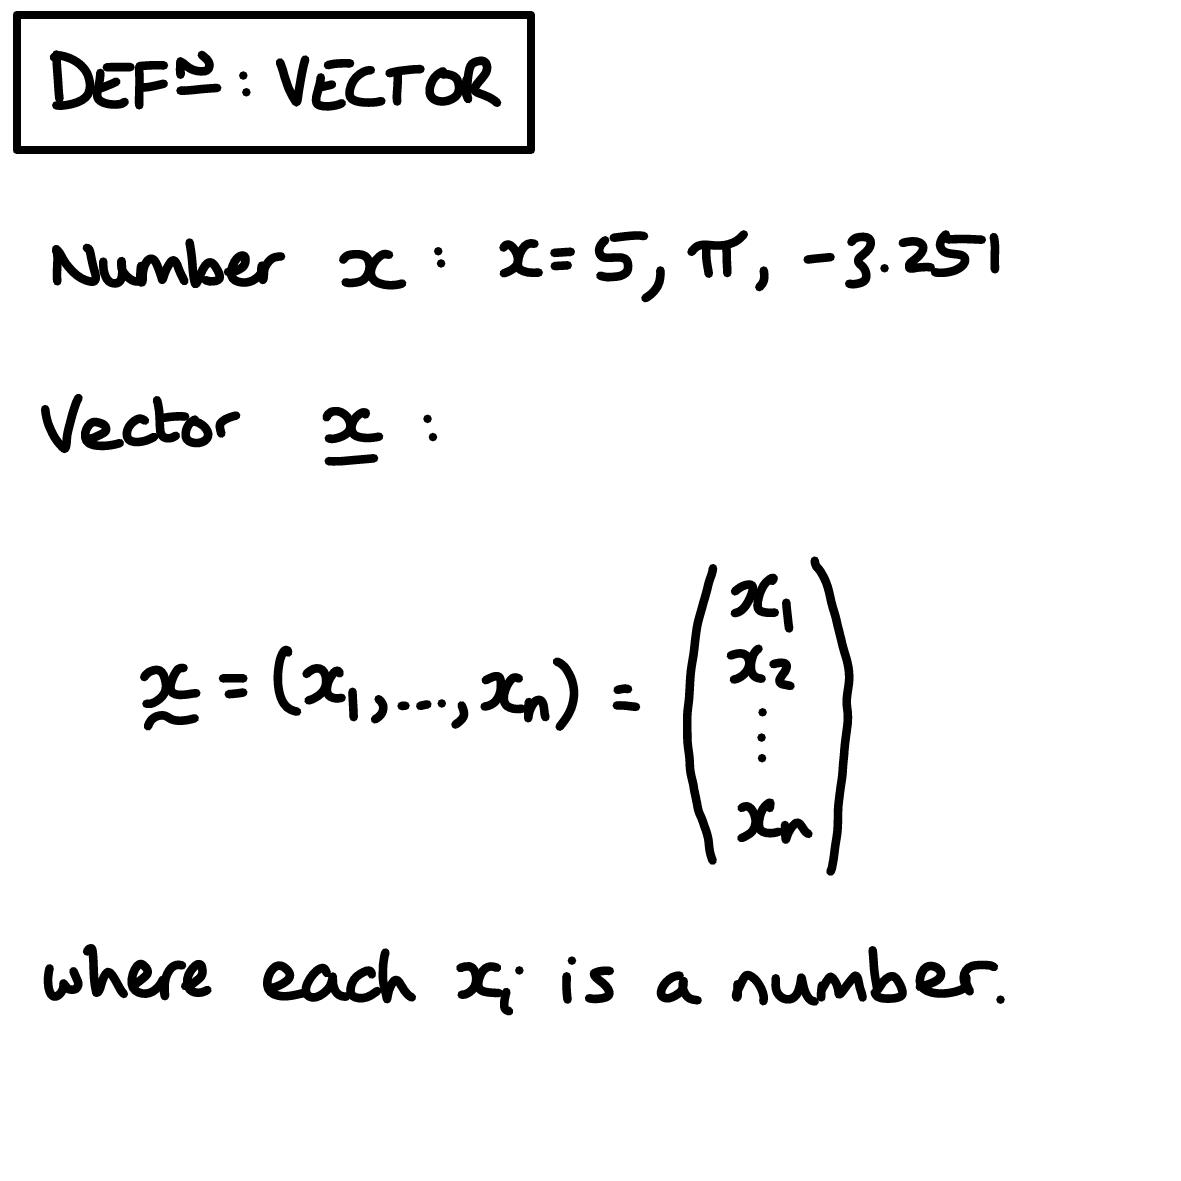 DEFᴺ: VECTOR
Number x : x = 5, π, -3.251
Vector x̲ :
x̰ = (x₁, ..., xₙ) = (x₁
x₂
⋮
xₙ)
where each xᵢ is a number.